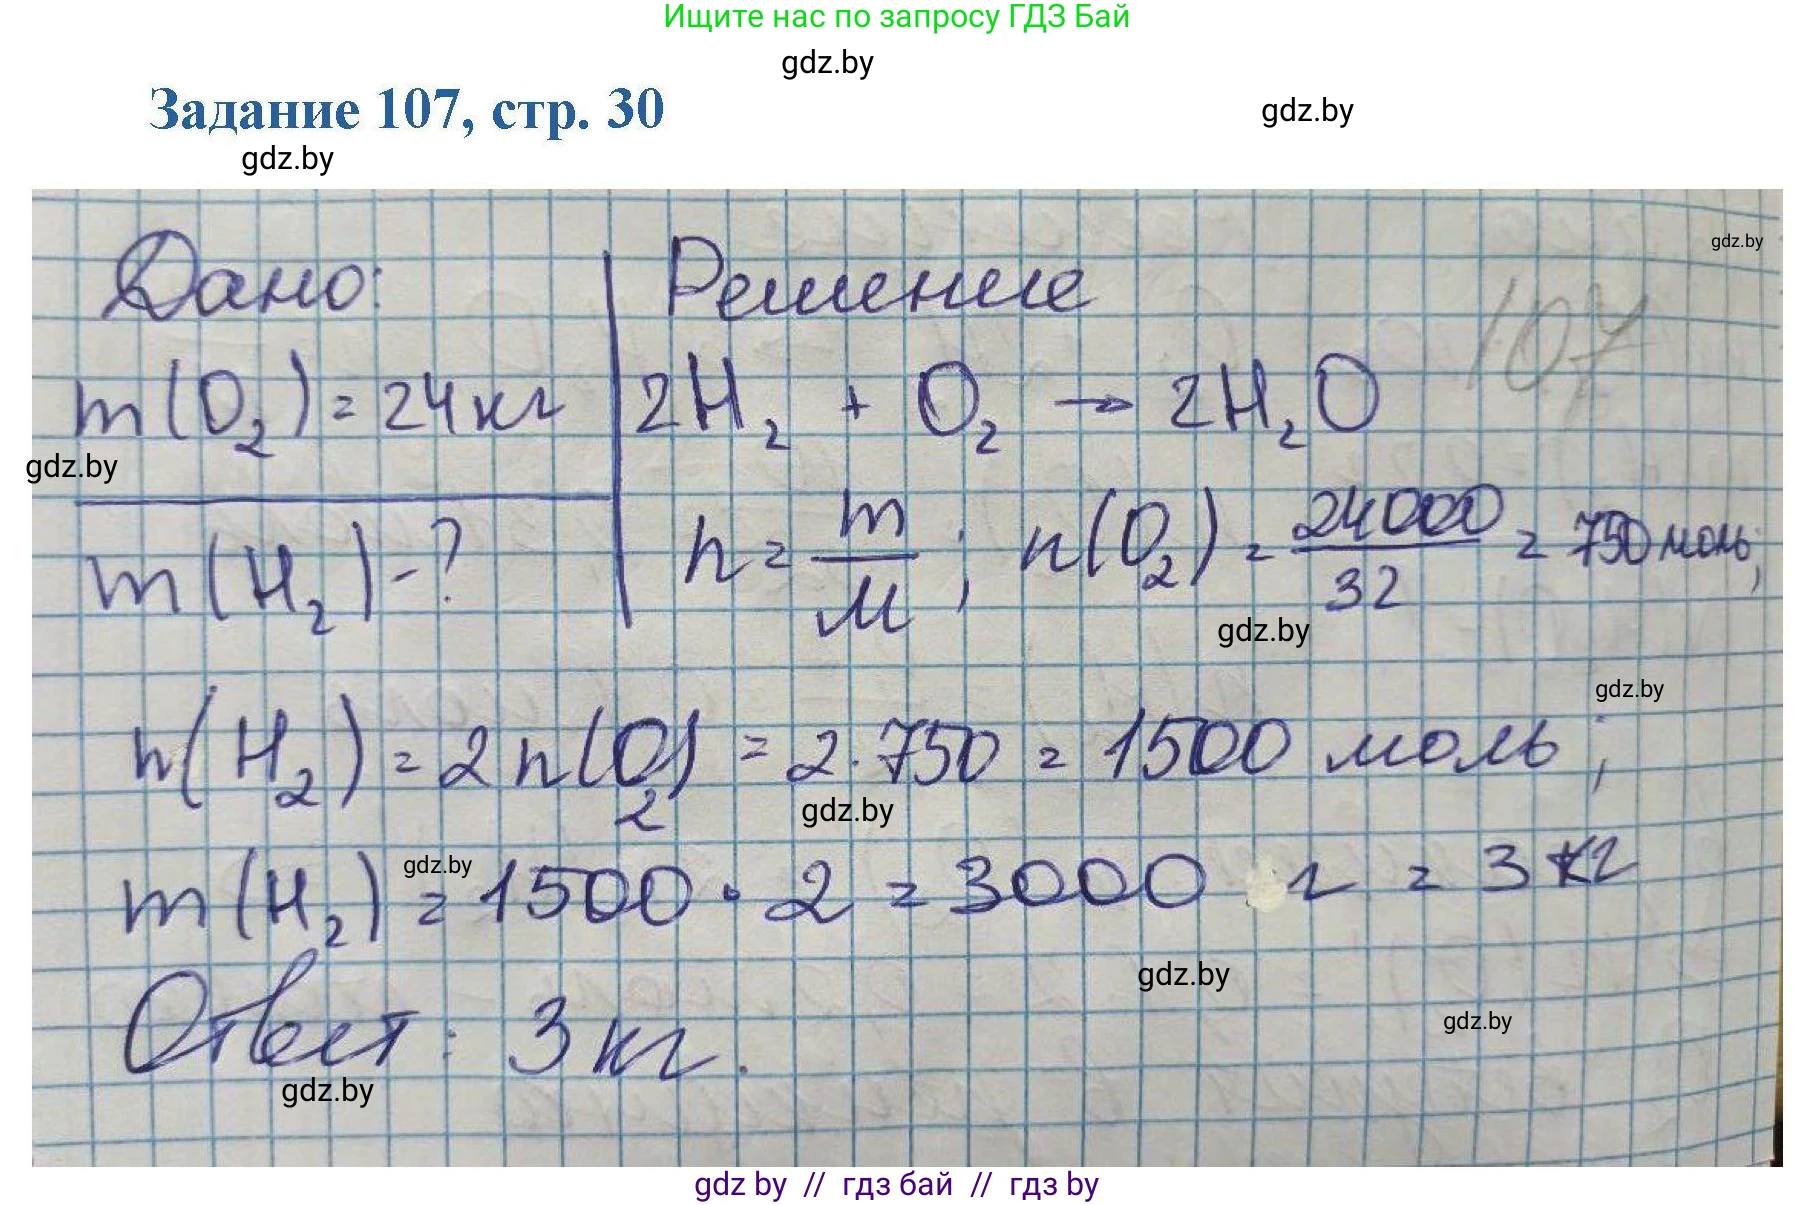 Ищите нас по запросу ГДЗ Бай
gdz.by
Задание 107, стр. 30
gdz.by
gdz.by
gdz.by
Дано:
Решение
107
m(O₂) = 24 кг
2H₂ + O₂ → 2H₂O
gdz.by
m(H₂) - ?
n = m/M ; n(O₂) = 24000/32 = 750 моль;
gdz.by
gdz.by
n(H₂) = 2n(O₂) = 2·750 = 1500 моль;
gdz.by
gdz.by
m(H₂) = 1500 · 2 = 3000 г = 3 кг
gdz.by
gdz.by
Ответ: 3 кг.
gdz.by
gdz by // гдз бай // гдз by